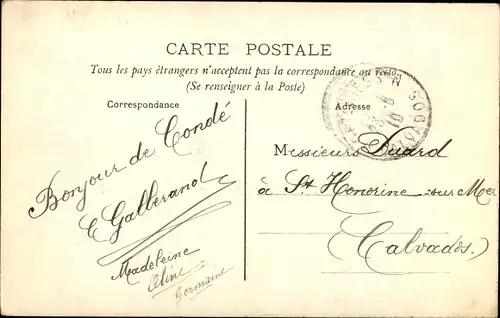 CARTE POSTALE
Tous les pays étrangers n'acceptent pas la correspondance au recto
(Se renseigner à la Poste)
Correspondance
Adresse
Bonjour de Condé
E Galberand
Madeleine
Aline
Germaine
Messieurs Duard
à St Honorine-sur-Mer
Calvados.
CALVADOS